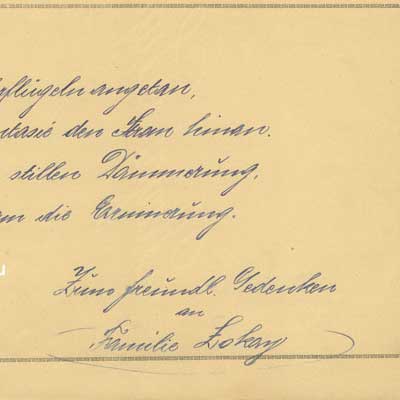 flügeln angetan,
tasie den Kran hinan.
stillen Dämmerung,
die Erinnerung.
Zum freundl. Gedenken
an
Familie Lokay